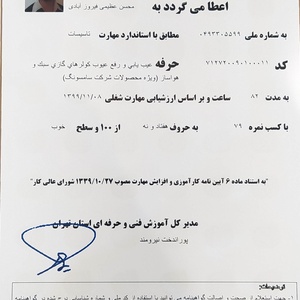 محسن عظیمی فیروز آبادی
اعطا می گردد به
به شماره ملی ۰۴۹۳۳۰۵۵۹۹ مطابق با استاندارد مهارت تاسیسات
کد ۷۱۲۷۲۰۰۹۰۱۰۰۰۱۱ حرفه عیب یابی و رفع عیوب کولرهای گازی سبک و
هواساز (ویژه محصولات شرکت سامسونگ)
به مدت ۸۲ ساعت و بر اساس ارزشیابی مهارت شغلی ۱۳۹۹/۱۱/۰۸
با کسب نمره ۷۹ به حروف هفتاد و نه از ۱۰۰ و سطح خوب
"به استناد ماده ۶ آیین نامه کارآموزی و افزایش مهارت مصوب ۱۳۳۹/۱۰/۲۷ شورای عالی کار"
مدیر کل آموزش فنی و حرفه ای استان تهران
پور اندخت نیرومند
توضیحات: